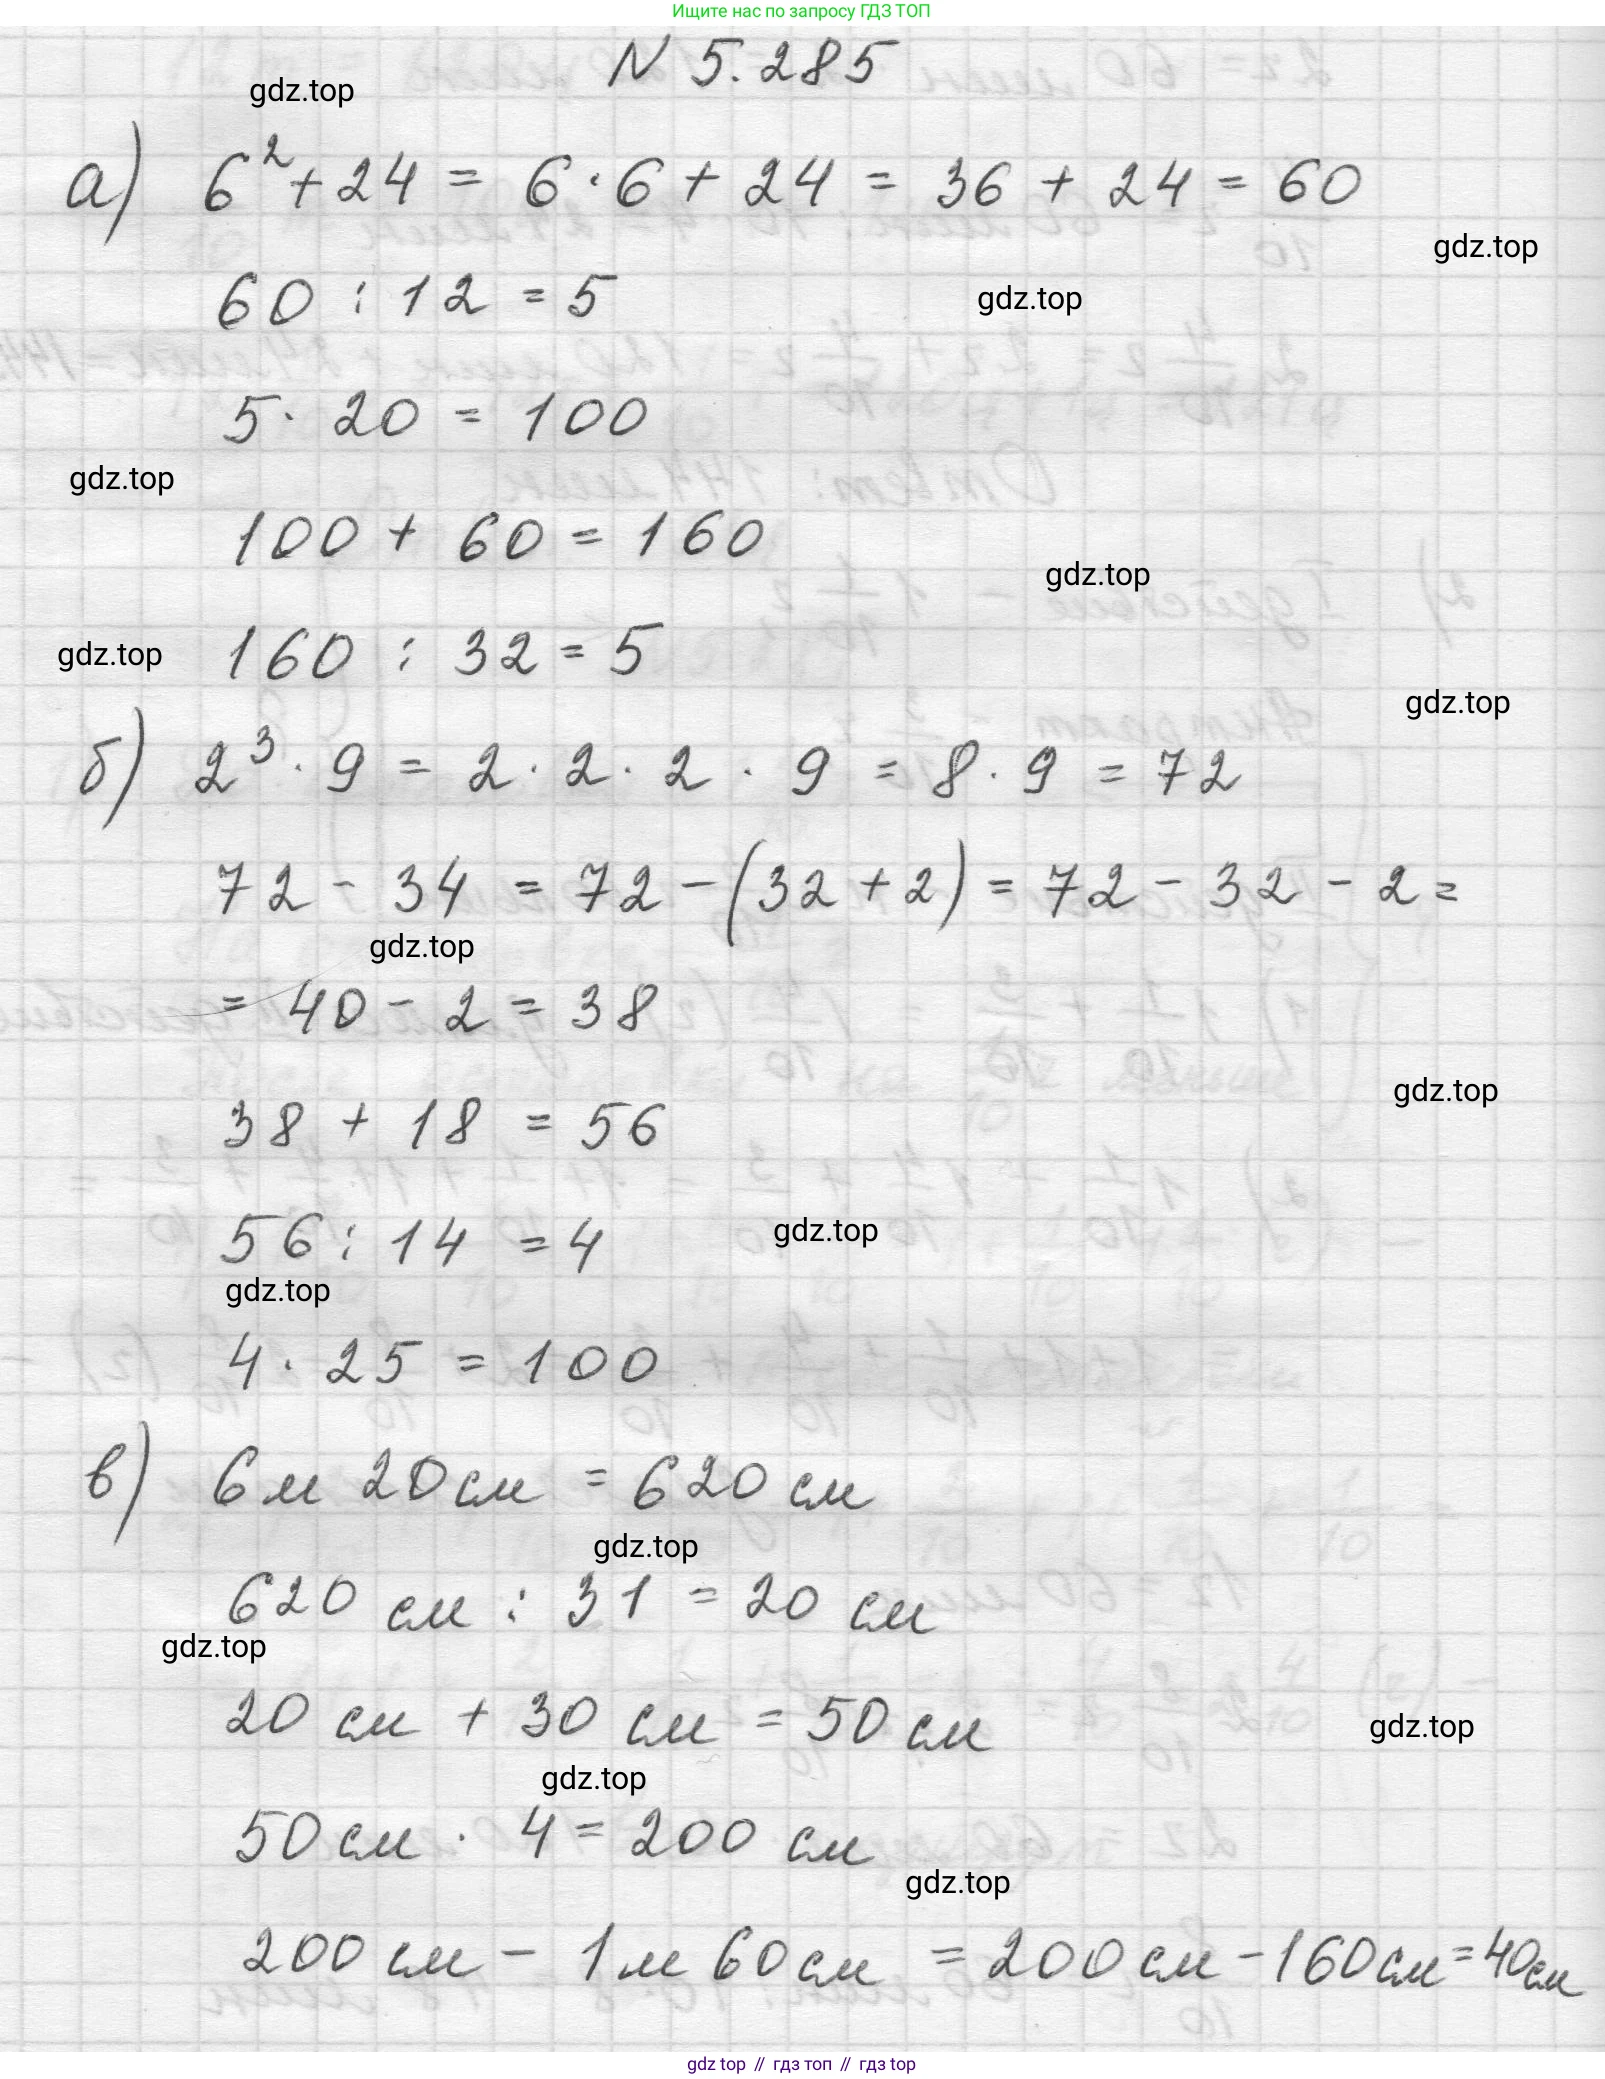 Ищите нас по запросу ГДЗ ТОП
N 5.285
gdz.top
а) 6² + 24 = 6 · 6 + 24 = 36 + 24 = 60
gdz.top
60 : 12 = 5
gdz.top
5 · 20 = 100
gdz.top
100 + 60 = 160
gdz.top
160 : 32 = 5
gdz.top
gdz.top
б) 2³ · 9 = 2 · 2 · 2 · 9 = 8 · 9 = 72
72 - 34 = 72 - (32 + 2) = 72 - 32 - 2 =
gdz.top
= 40 - 2 = 38
gdz.top
38 + 18 = 56
56 : 14 = 4
gdz.top
gdz.top
4 · 25 = 100
в) 6 м 20 см = 620 см
gdz.top
620 см : 31 = 20 см
gdz.top
20 см + 30 см = 50 см
gdz.top
gdz.top
50 см · 4 = 200 см
gdz.top
200 см - 1 м 60 см = 200 см - 160 см = 40 см
gdz top // гдз топ // gdz top